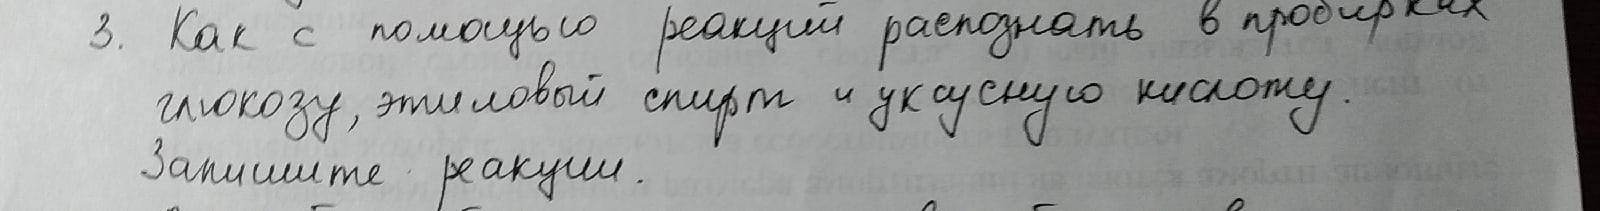 3. Как с помощью реакций распознать в пробирках
глюкозу, этиловый спирт и уксусную кислоту.
Запишите реакции.